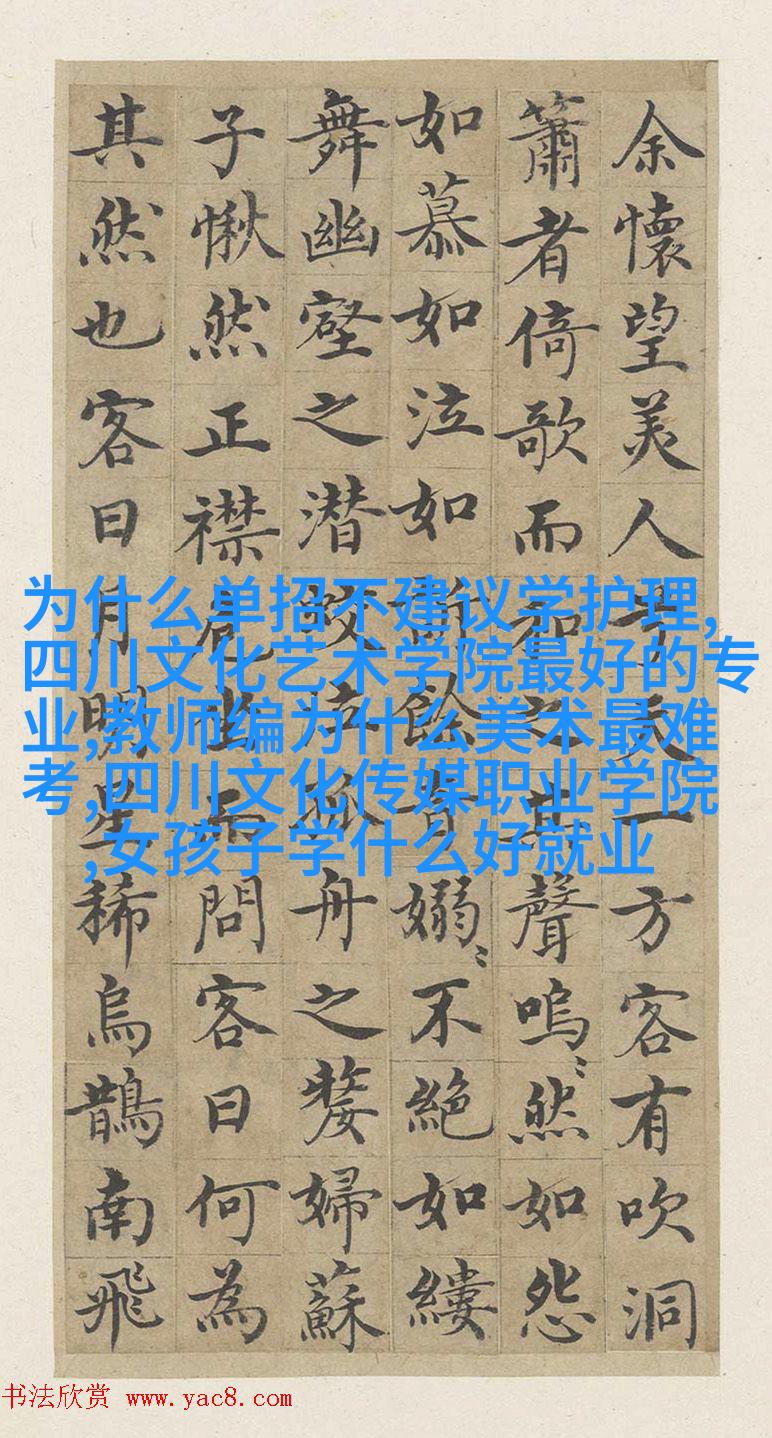 余懷望美人兮天一方客有吹洞
簫者倚歌而和之其聲嗚〻然如怨
如慕如泣如訴餘音嫋〻不絕如縷
舞幽壑之潜蛟泣孤舟之嫠婦蘇
子愀然正襟危坐而問客曰何為
其然也客曰月明星稀烏鵲南飛
为什么单招不建议学护理,
四川文化艺术学院最好的专
业,教师编为什么美术最难
考,四川文化传媒职业学院
,女孩子学什么好就业
书法欣赏 www.yac8.com